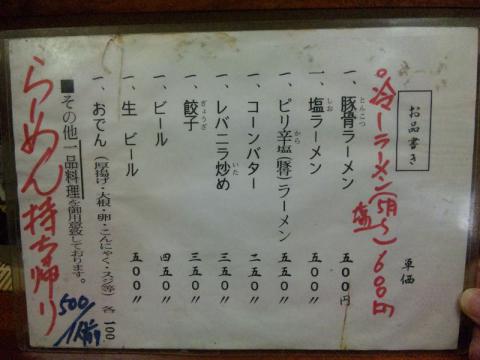 お品書き
単価
冷しラーメン(5月〜)600円
塩
一、豚骨ラーメン 五〇〇円
とんこつ
一、塩ラーメン 五〇〇〃
しお
一、ピリ辛塩(豚骨)ラーメン 五五〇〃
から
一、コーンバター 二五〇〃
一、レバニラ炒め 三五〇〃
いた
一、餃子 三五〇〃
ぎょうざ
一、ビール 四五〇〃
一、生 ビール 五〇〇〃
一、おでん(厚揚げ・大根・卵・こんにゃく・スジ等)各 100
■その他一品料理を御用意致しております。
らーめん持ち帰り
500/1人前